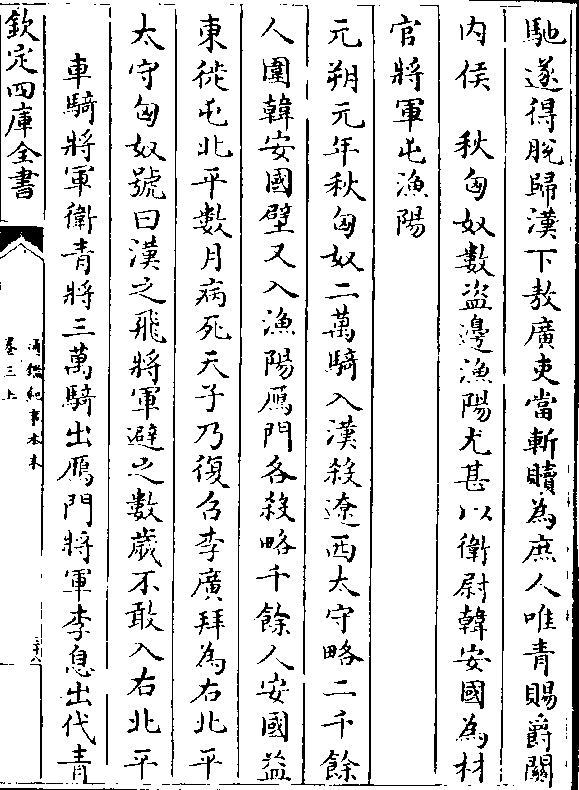 馳遂得脫歸漢下敖廣吏當斬贖為庶人唯青賜爵關
内侯　秋匈奴數盗邊漁陽尤甚以衛尉韓安國為材
官將軍屯漁陽
元朔元年秋匈奴二萬騎入漢殺遼西太守略二千餘
人圍韓安國壁又入漁陽鴈門各殺略千餘人安國益
東徙屯北平數月病死天子乃復召李廣拜為右北平
太守匈奴號曰漢之飛將軍避之數歲不敢入右北平
車騎將軍衛青將三萬騎出鴈門將軍李息出代青
欽定四庫全書
通鑑紀事本末
卷三上
三十八